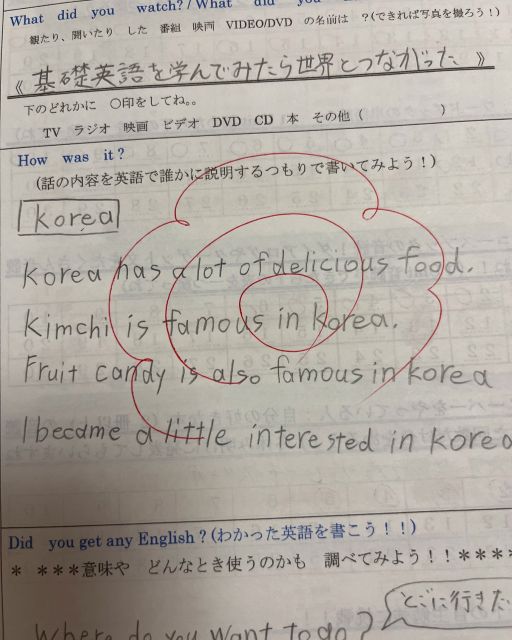 What did you watch? / What did you
観たり、聞いたり した 番組 映画 VIDEO/DVD の名前は ?(できれば写真を撮ろう!)
《 基礎英語を学んでみたら世界とつながった 》
下のどれかに ○印をしてね。。
TV ラジオ 映画 ビデオ DVD CD 本 その他 ( )
How was it ?
(話の内容を英語で誰かに説明するつもりで書いてみよう!)
korea
Korea has a lot of delicious food.
Kimchi is famous in korea.
Fruit candy is also famous in korea
I became a little interested in korea
Did you get any English ? (わかった英語を書こう!!)
* ***意味や どんなとき使うのかも 調べてみよう!!****
とこに行きた
Where do you want to go?